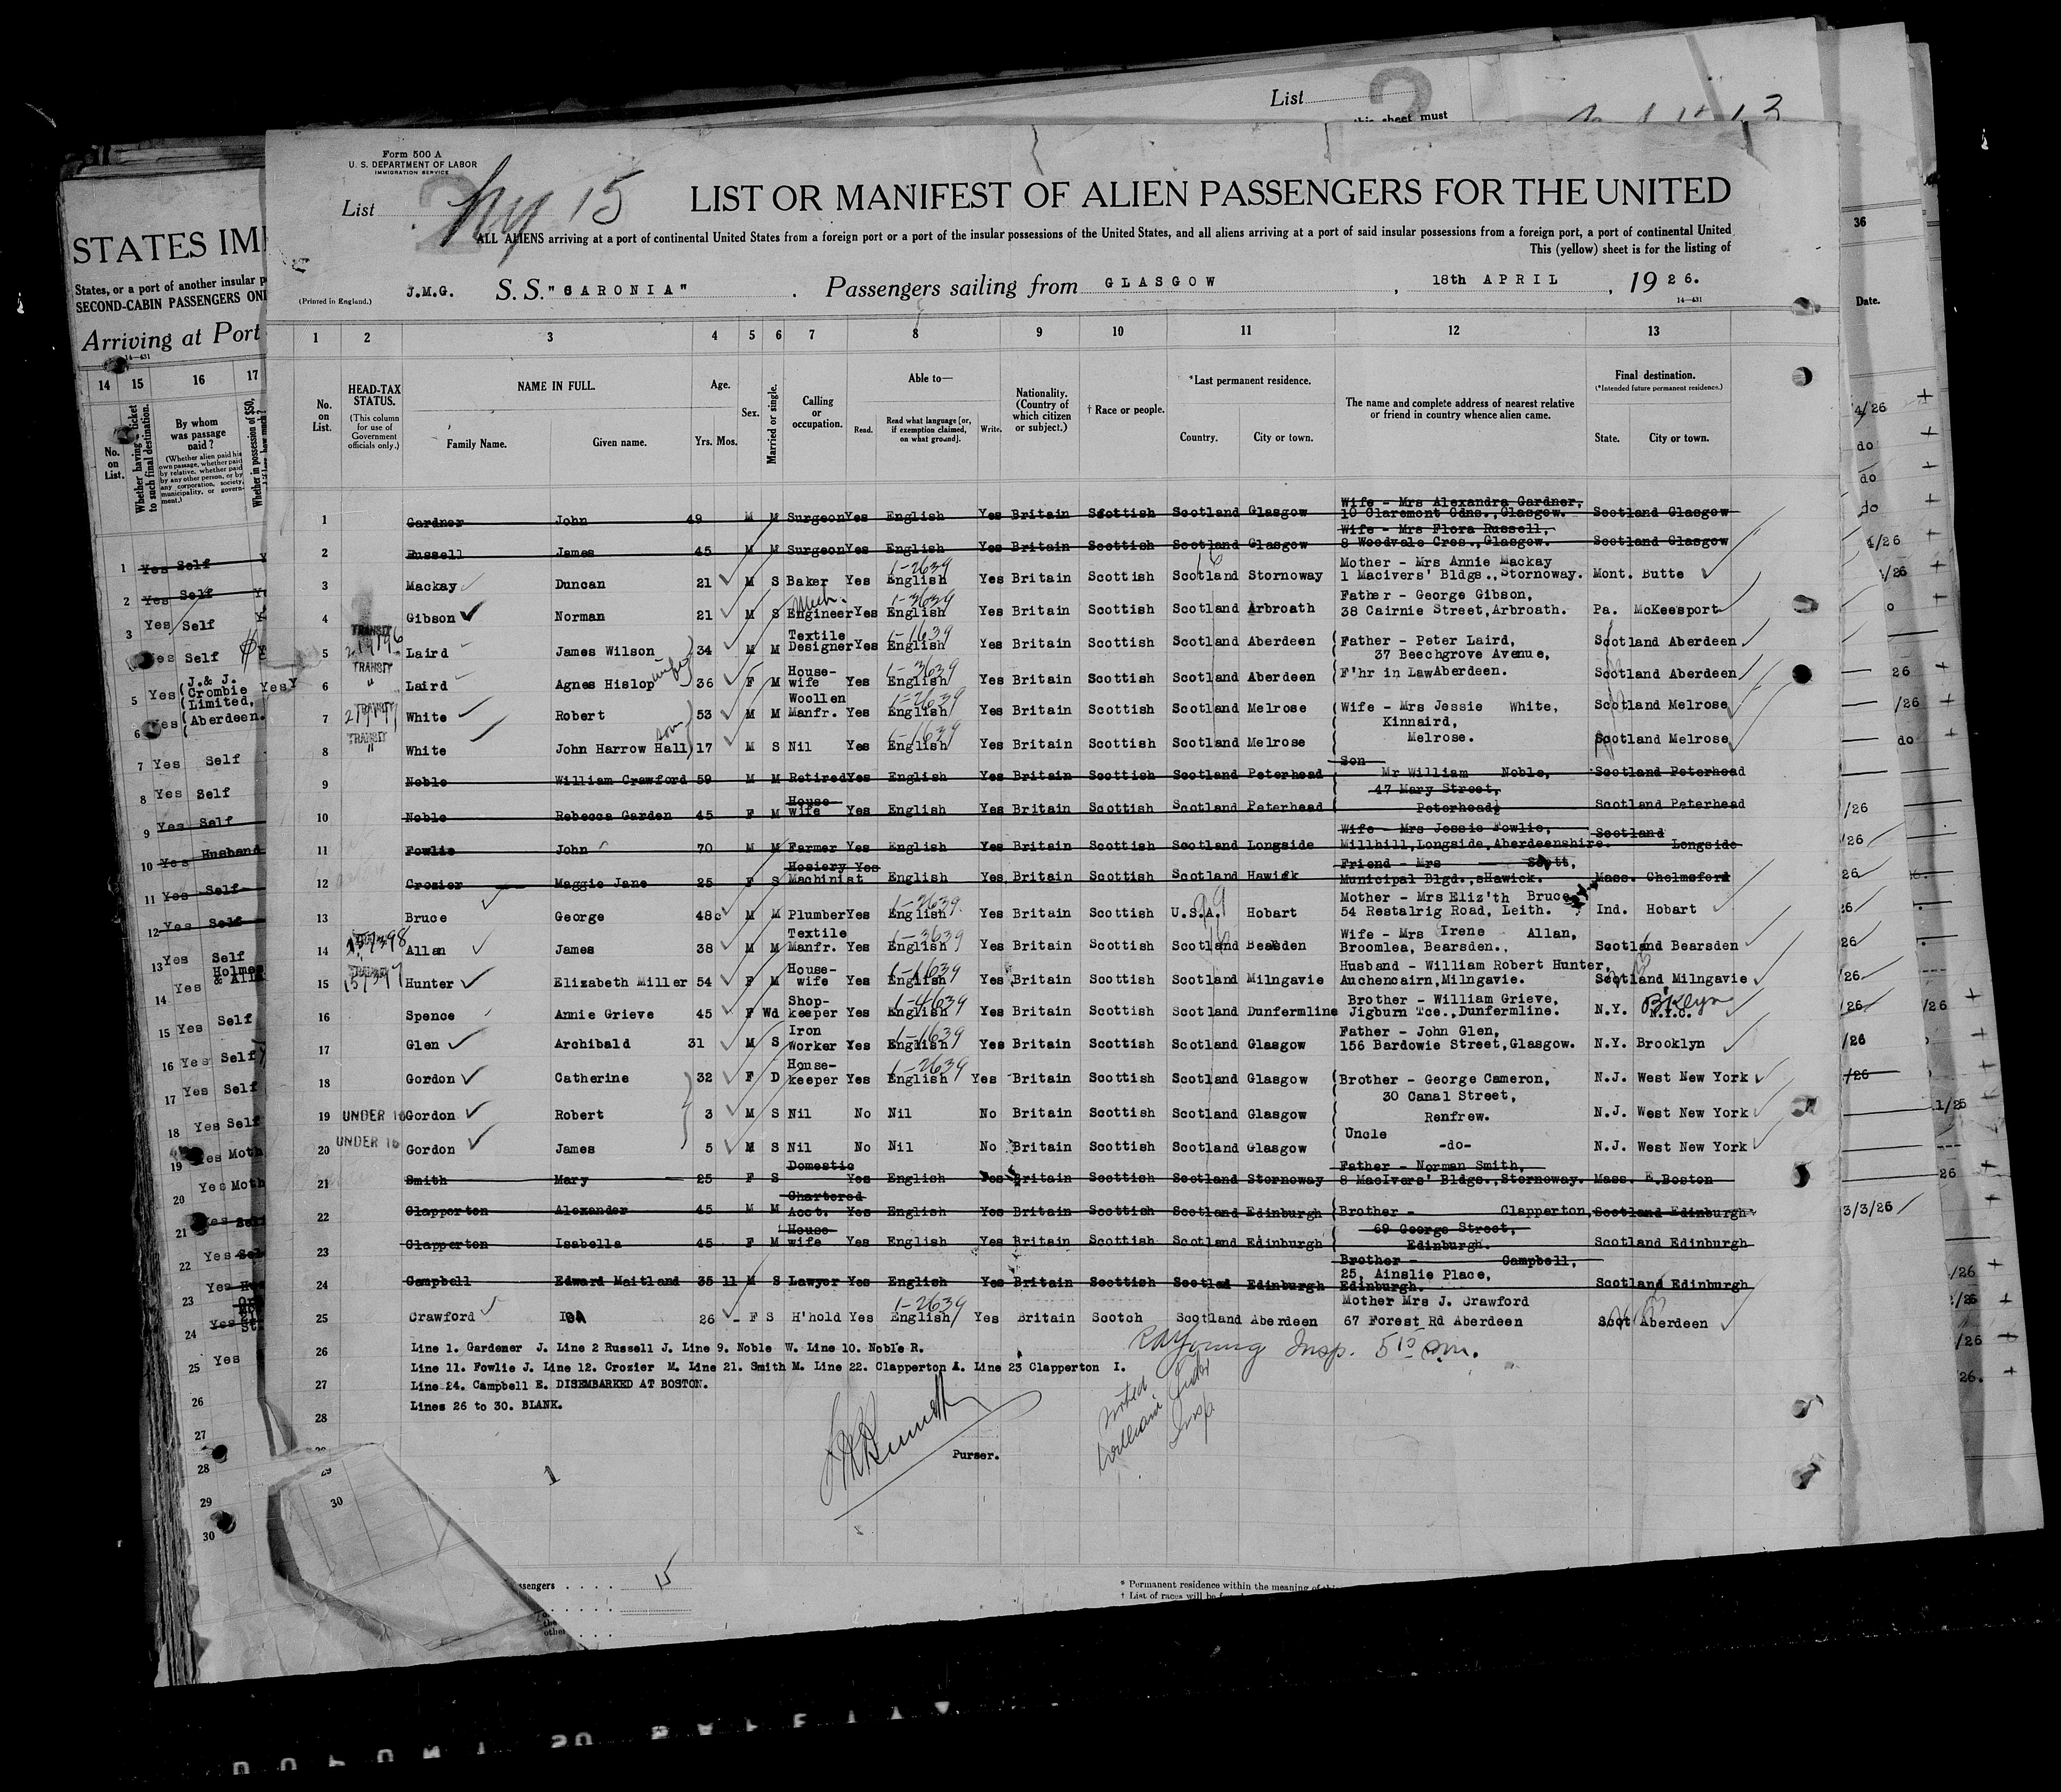 List
this sheet must
Form 500 A
U. S. DEPARTMENT OF LABOR
IMMIGRATION SERVICE
List 2 ny 15
LIST OR MANIFEST OF ALIEN PASSENGERS FOR THE UNITED
ALL ALIENS arriving at a port of continental United States from a foreign port or a port of the insular possessions of the United States, and all aliens arriving at a port of said insular possessions from a foreign port, a port of continental United
This (yellow) sheet is for the listing of
(Printed in England.) J.M.G. S. S. "CARONIA" . Passengers sailing from GLASGOW , 18th APRIL , 1926.
14—431
1 2 3 4 5 6 7 8 9 10 11 12 13
No. on List. HEAD-TAX STATUS. (This column for use of Government officials only.) NAME IN FULL. Family Name. Given name. Age. Yrs. Mos. Sex. Married or single. Calling or occupation. Able to— Read. Read what language [or, if exemption claimed, on what ground]. Write. Nationality. (Country of which citizen or subject.) † Race or people. *Last permanent residence. Country. City or town. The name and complete address of nearest relative or friend in country whence alien came. Final destination. (*Intended future permanent residence.) State. City or town.
1 Gardner John 49 M M Surgeon Yes English Yes Britain Scottish Scotland Glasgow Wife - Mrs Alexandra Gardner, 10 Claremont Gdns., Glasgow. Scotland Glasgow
2 Russell James 45 M M Surgeon Yes English Yes Britain Scottish Scotland Glasgow Wife - Mrs Flora Russell, 8 Woodvale Cres., Glasgow. Scotland Glasgow
3 Mackay Duncan 21 M S Baker Yes English 1-2639 Yes Britain Scottish Scotland Stornoway Mother - Mrs Annie Mackay 1 Macivers' Bldgs., Stornoway. Mont. Butte
4 Gibson Norman 21 M S Mech. Engineer Yes English 1-3639 Yes Britain Scottish Scotland Arbroath Father - George Gibson, 38 Cairnie Street, Arbroath. Pa. McKeesport
5 TRANSIT Laird James Wilson 34 M M Textile Designer Yes English 1-1639 Yes Britain Scottish Scotland Aberdeen Father - Peter Laird, 37 Beechgrove Avenue, Scotland Aberdeen
6 TRANSIT " Laird Agnes Hislop wife 36 F M House-wife Yes English 1-3639 Yes Britain Scottish Scotland Aberdeen F'hr in Law Aberdeen. Scotland Aberdeen
7 TRANSIT White Robert 53 M M Woollen Manfr. Yes English 1-2639 Yes Britain Scottish Scotland Melrose Wife - Mrs Jessie White, Kinnaird, Scotland Melrose
8 TRANSIT " White John Harrow Hall son 17 M S Nil Yes English 1-1639 Yes Britain Scottish Scotland Melrose Melrose. Scotland Melrose
9 Noble William Crawford 59 M M Retired Yes English Yes Britain Scottish Scotland Peterhead Son Mr William Noble, Scotland Peterhead
10 Noble Rebecca Garden 45 F M House-wife Yes English Yes Britain Scottish Scotland Peterhead 47 Mary Street, Peterhead, Scotland Peterhead
11 Fowlie John 70 M M Farmer Yes English Yes Britain Scottish Scotland Longside Wife - Mrs Jessie Fowlie, Millhill, Longside, Aberdeenshire. Scotland Longside
12 Crozier Maggie Jane 25 F S Hosiery Machinist Yes English Yes Britain Scottish Scotland Hawick Friend - Mrs Scott, Municipal Blgd., sHawick. Mass. Chelmsford
13 Bruce George 48 M M Plumber Yes English 1-2639 Yes Britain Scottish U.S.A. Hobart Mother - Mrs Eliz'th Bruce 54 Restalrig Road, Leith. Ind. Hobart
14 157398 Allan James 38 M M Textile Manfr. Yes English 1-3639 Yes Britain Scottish Scotland Bearsden Wife - Mrs Irene Allan, Broomlea, Bearsden., Scotland Bearsden
15 157397 Hunter Elizabeth Miller 54 F M House-wife Yes English 1-1639 Yes Britain Scottish Scotland Milngavie Husband - William Robert Hunter, Auchencairn, Milngavie. Scotland Milngavie
16 Spence Annie Grieve 45 F Wd Shop-keeper Yes English 1-4639 Yes Britain Scottish Scotland Dunfermline Brother - William Grieve, Jigburn Tce., Dunfermline. N.Y. N.Y.C. B'klyn
17 Glen Archibald 31 M S Iron Worker Yes English 1-1639 Yes Britain Scottish Scotland Glasgow Father - John Glen, 156 Bardowie Street, Glasgow. N.Y. Brooklyn
18 Gordon Catherine 32 F D House-keeper Yes English 1-2639 Yes Britain Scottish Scotland Glasgow Brother - George Cameron, 30 Canal Street, N.J. West New York
19 UNDER 16 Gordon Robert 3 M S Nil No Nil No Britain Scottish Scotland Glasgow Renfrew. N.J. West New York
20 UNDER 16 Gordon James 5 M S Nil No Nil No Britain Scottish Scotland Glasgow Uncle -do- N.J. West New York
21 Smith Mary 25 F S Domestic Yes English Yes Britain Scottish Scotland Stornoway Father - Norman Smith, 8 MacIvers' Bldgs., Stornoway. Mass. E.Boston
22 Clapperton Alexander 45 M M Chartered Acct. Yes English Yes Britain Scottish Scotland Edinburgh Brother - Clapperton, Scotland Edinburgh
23 Clapperton Isabella 45 F M House-wife Yes English Yes Britain Scottish Scotland Edinburgh 69 George Street, Edinburgh. Scotland Edinburgh
24 Campbell Edward Maitland 35 11 M S Lawyer Yes English Yes Britain Scottish Scotlad Edinburgh Brother - Campbell, 25, Ainslie Place, Edinburgh. Scotland Edinburgh
25 Crawford 26 F S H'hold Yes English 1-2639 Yes Britain Scotch Scotland Aberdeen Mother Mrs J. Crawford 67 Forest Rd Aberdeen Scot Aberdeen
26 Line 1. Gardener J. Line 2 Russell J. Line 9. Noble W. Line 10. Noble R.
Line 11. Fowlie J. Line 12. Crozier M. Line 21. Smith M. Line 22. Clapperton A. Line 23 Clapperton I.
27 Line 24. Campbell E. DISEMBARKED AT BOSTON.
28 Lines 26 to 30. BLANK.
Young Insp. 5 15 pm.
noted William Insp
Purser.
29
30
1
ssengers . . . . 15
* Permanent residence within the meaning of
† List of races will be
STATES IM
States, or a port of another insular p
SECOND-CABIN PASSENGERS ONL
Arriving at Port
14—431
14 15 16 17
No. on List. Whether having a ticket to such final destination. By whom was passage paid? (Whether alien paid his own passage, whether paid by relative, whether paid by any other person, or by any corporation, society, municipality, or government.) Whether in possession of $50,
1 Yes Self
2 Yes Self
3 Yes Self
Yes Self
5 Yes J. & J. Crombie Limited, Yes
6 Yes Aberdeen.
7 Yes Self
8 Yes Self
9 Yes Self
10 Yes Husband
11 Yes Self
12 Yes Self
13 Yes Self
14 Yes Holmes
15 Yes Self
16 Yes Self
17 Yes Self
18 Yes Self
19 Yes Moth
20 Yes Moth
21 Yes Self
22 Yes
23 Yes
24 Yes
25 Yes
26
27
28
29
30
36
Date.
4/26
do
do
do
4/26
26
/26
do
3/3/26